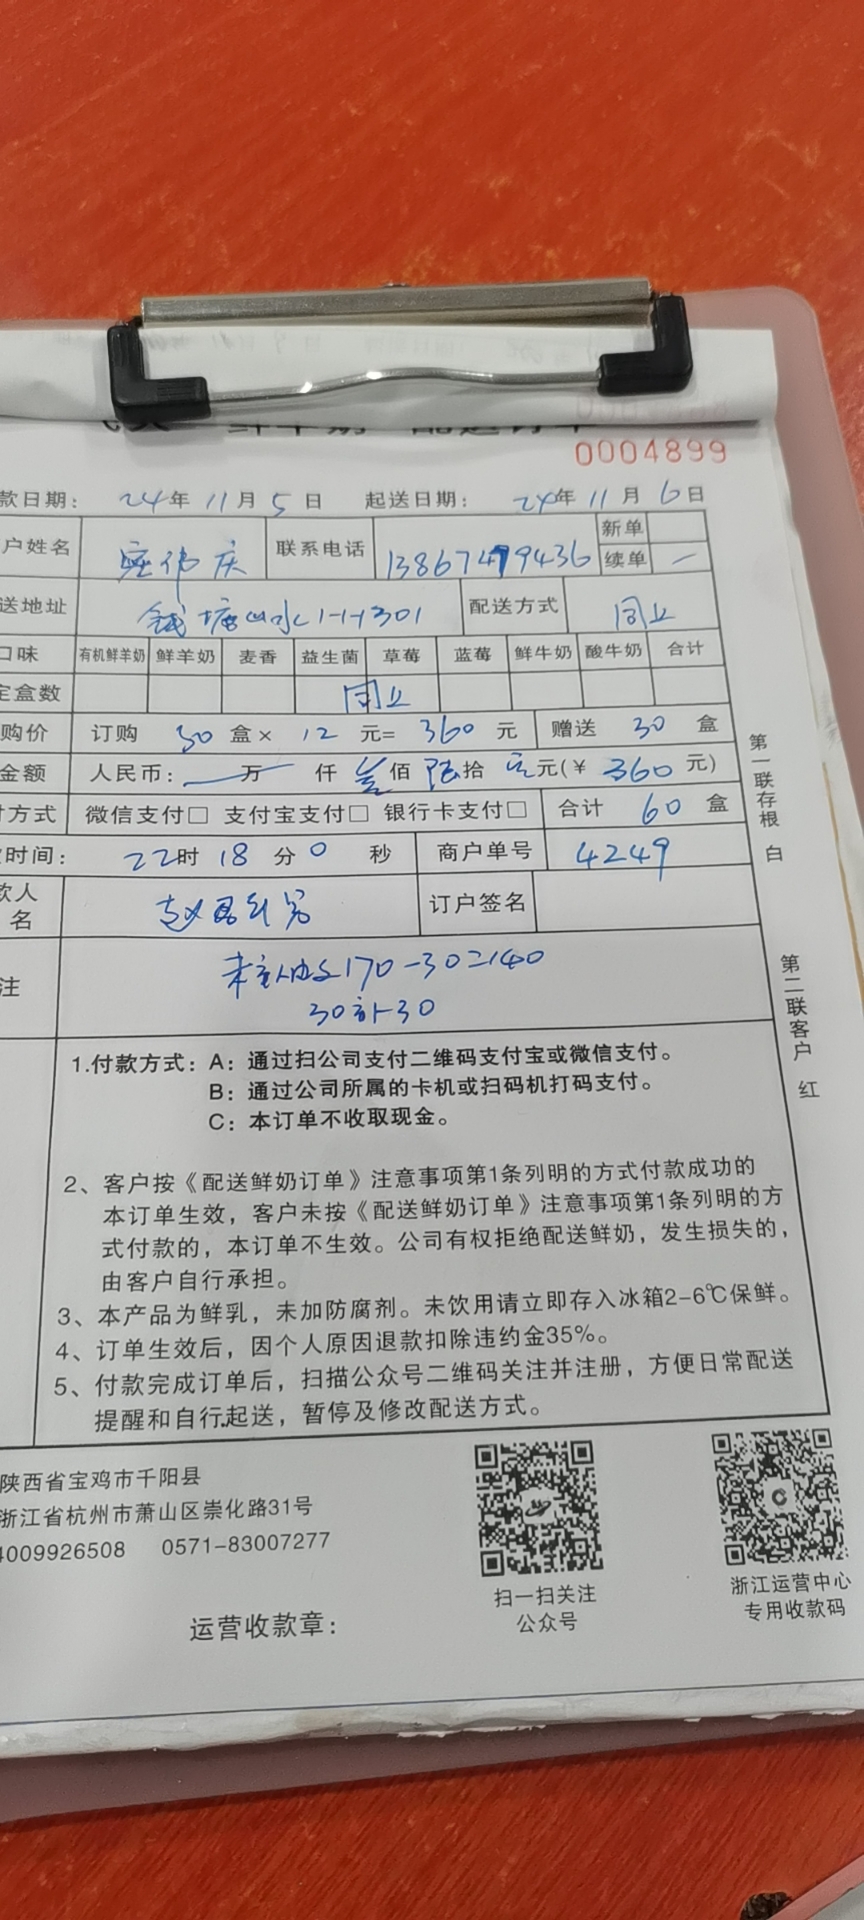 0004899
款日期： 24年 11月 5日 起送日期： 24年 11月 6日
户姓名 联系电话 13867479436 新单
续单 一
送地址 钱塘山水1-1-1301 配送方式 同上
口味 有机鲜羊奶 鲜羊奶 麦香 益生菌 草莓 蓝莓 鲜牛奶 酸牛奶 合计
定盒数 同上
购价 订购 30 盒× 12 元= 360 元 赠送 30 盒
金额 人民币： 万 仟 叁佰 陆拾 元(￥ 360 元)
付方式 微信支付□ 支付宝支付□ 银行卡支付□ 合计 60 盒
时间： 22时 18分 0 秒 商户单号 4249
款人
名 订户签名
注 170-30=140
30 30
1.付款方式：A：通过扫公司支付二维码支付宝或微信支付。
B：通过公司所属的卡机或扫码机打码支付。
C：本订单不收取现金。
2、客户按《配送鲜奶订单》注意事项第1条列明的方式付款成功的
本订单生效，客户未按《配送鲜奶订单》注意事项第1条列明的方
式付款的，本订单不生效。公司有权拒绝配送鲜奶，发生损失的，
由客户自行承担。
3、本产品为鲜乳，未加防腐剂。未饮用请立即存入冰箱2-6℃保鲜。
4、订单生效后，因个人原因退款扣除违约金35%。
5、付款完成订单后，扫描公众号二维码关注并注册，方便日常配送
提醒和自行起送，暂停及修改配送方式。
第一联存根 白
第二联客户 红
陕西省宝鸡市千阳县
浙江省杭州市萧山区崇化路31号
4009926508 0571-83007277
扫一扫关注
公众号
浙江运营中心
专用收款码
运营收款章：